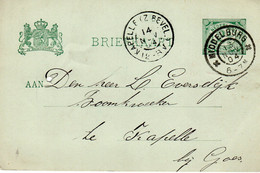 BRIEF
KAPELLE (Z. BEVEL.)
14
MIDDELBURG
AAN Den heer L. Eversdijk
Boomkweeker
te Kapelle
bij Goes